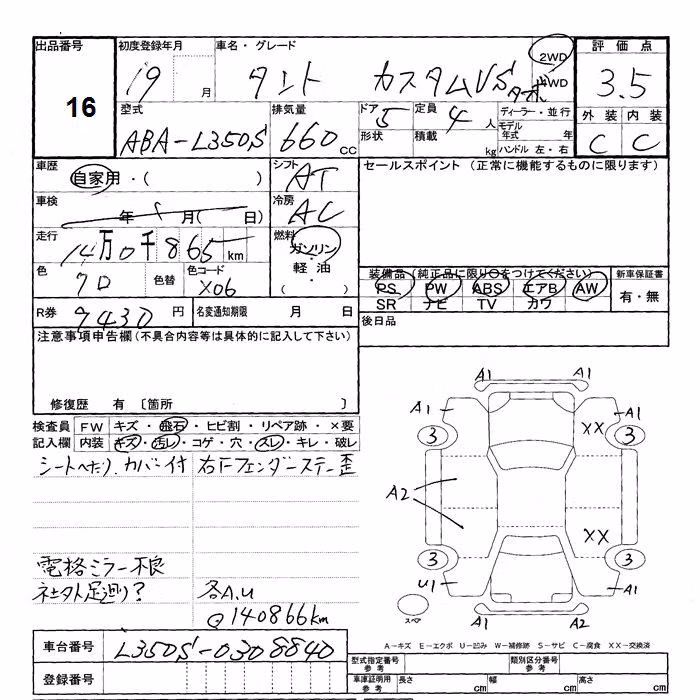 出品番号 初度登録年月 車名・グレード 評価点
16 19 月 タント カスタムVS ターボ 2WD 4WD 3.5
型式 排気量 ドア 定員 ディーラー・並行 外装 内装
ABA-L350S 660 CC 5 4 人 モデル年式 年 C C
形状 積載 kg ハンドル 左・右
車歴 シフト セールスポイント (正常に機能するものに限ります)
自家用・( ) AT
車検 冷房
年 月( 日) AC
走行 燃料
14万0千865 km ガソリン・軽油・( )
色 色替 色コード 装備品(純正品に限り○をつけてください) 新車保証書
クロ X06 PS PW ABS エアB AW 有・無
SR ナビ TV カワ
R券 9430 円 名変通知期限 月 日 後日品
注意事項申告欄(不具合内容等は具体的に記入して下さい)
修復歴 有 〔箇所
検査員 FW キズ・飛石・ヒビ割・リペア跡・×要
記入欄 内装 キズ・汚レ・コゲ・穴・スレ・キレ・破レ
シートへたり、カバー付 右Fフェンダーステー歪
電格ミラー不良
社外足廻り? 各A.U
@140866km
A1 A1
A1 A1
3 XX 3
A2
XX
3 3
U1 A1
スペア A1 A2
A-キズ E-エクボ U-凹み W-補修跡 S-サビ C-腐食 XX-交換済
車台番号 L350S-0308840
型式指定番号 参考 類別区分番号 参考
登録番号 車庫証明用 参考 長さ cm 幅 cm 高さ cm